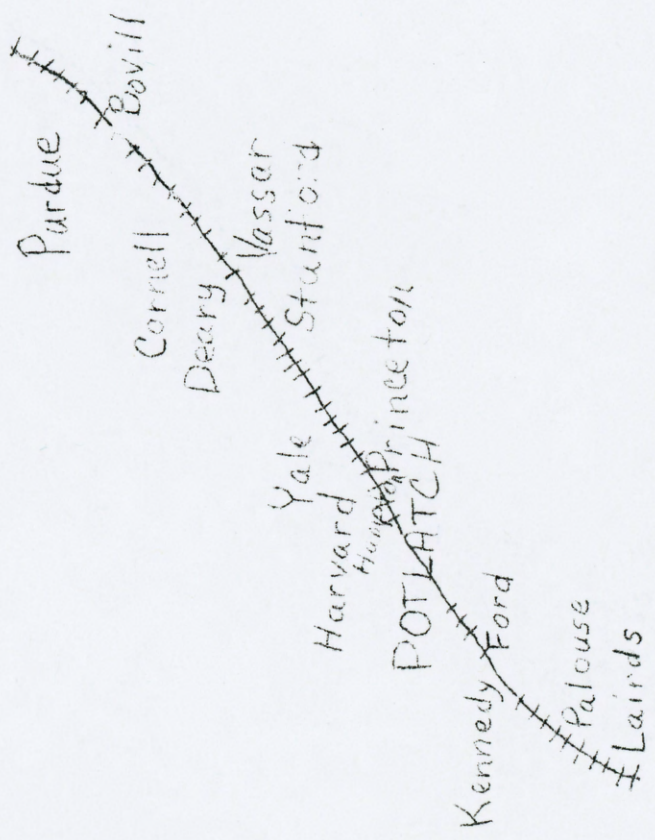 Purdue
Bovill
Cornell
Deary
Vassar
Stanford
Yale
Harvard
Hampton
Princeton
POTLATCH
Kennedy Ford
Palouse
Lairds